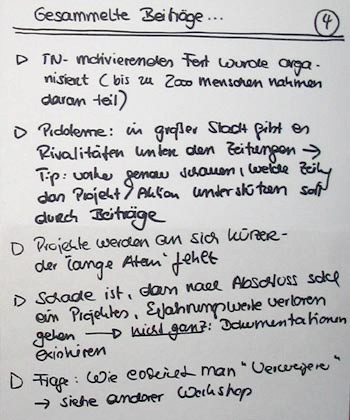 Gesammelte Beiträge... 4
▷ TN-motivierendes Fest wurde orga-
nisiert (bis zu 2000 Menschen nahmen
daran teil)
▷ Probleme: in großer Stadt gibt es
Rivalitäten unter den Zeitungen →
Tip: vorher genau schauen, welche Zeitg
das Projekt/Aktion unterstützen soll
durch Beiträge
▷ Projekte werden an sich kürzer-
der "lange Atem" fehlt
▷ Schade ist, dass nach Abschluss solch
ein Projektes, Erfahrungswerte verloren
gehen → nicht ganz: Dokumentationen
existieren
▷ Frage: Wie man "Verweigerer"
→ siehe anderer Workshop